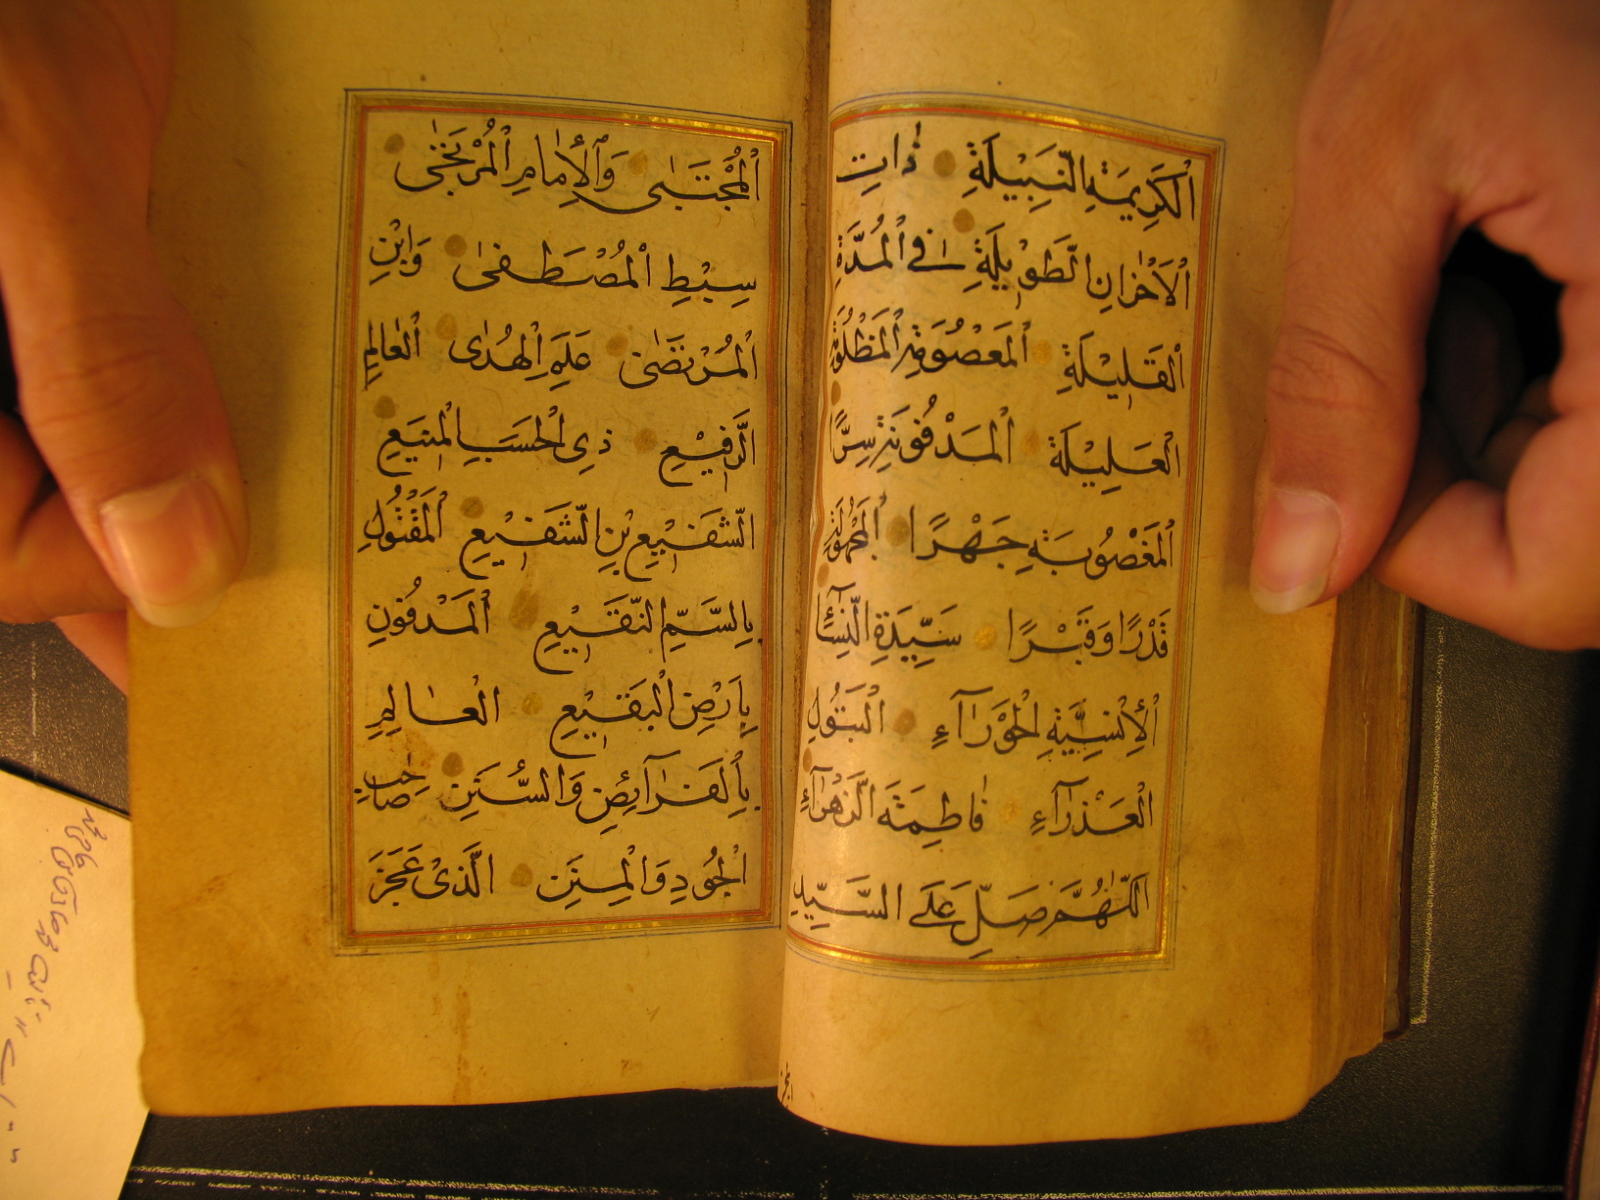 اَلْكَرِيمَةِ النَّبِيلَةِ ذَاتِ
الْاَحْزَانِ الطَّوِيلَةِ فِى الْمُدَّةِ
الْقَلِيلَةِ الْمَعْصُومَةِ الْمَظْلُومَةِ
الْعَلِيلَةِ الْمَدْفُونَةِ سِرًّا
الْمَغْصُوبَةِ جَهْرًا الْمَجْهُولَةِ
قَدْرًا وَقَبْرًا سَيِّدَةِ النِّسَآءِ
الْاِنْسِيَّةِ الْحَوْرَآءِ الْبَتُولِ
الْعَذْرَآءِ فَاطِمَةَ الزَّهْرَآءِ
اَللّٰهُمَّ صَلِّ عَلَى السَّيِّدِ
الْمُجْتَبٰى وَالْاِمَامِ الْمُرْتَجٰى
سِبْطِ الْمُصْطَفٰى وَابْنِ
الْمُرْتَضٰى عَلَمِ الْهُدٰى الْعَالِمِ
الرَّفِيعِ ذِى الْحَسَبِ الْمَنِيعِ
الشَّفِيعِ بْنِ الشَّفِيعِ الْمَقْتُولِ
بِالسَّمِّ النَّقِيعِ الْمَدْفُونِ
بِاَرْضِ الْبَقِيعِ الْعَالِمِ
بِالْفَرَآئِضِ وَالسُّنَنِ صَاحِبِ
الْجُودِ وَالْمِنَنِ الَّذِى عَجَزَ